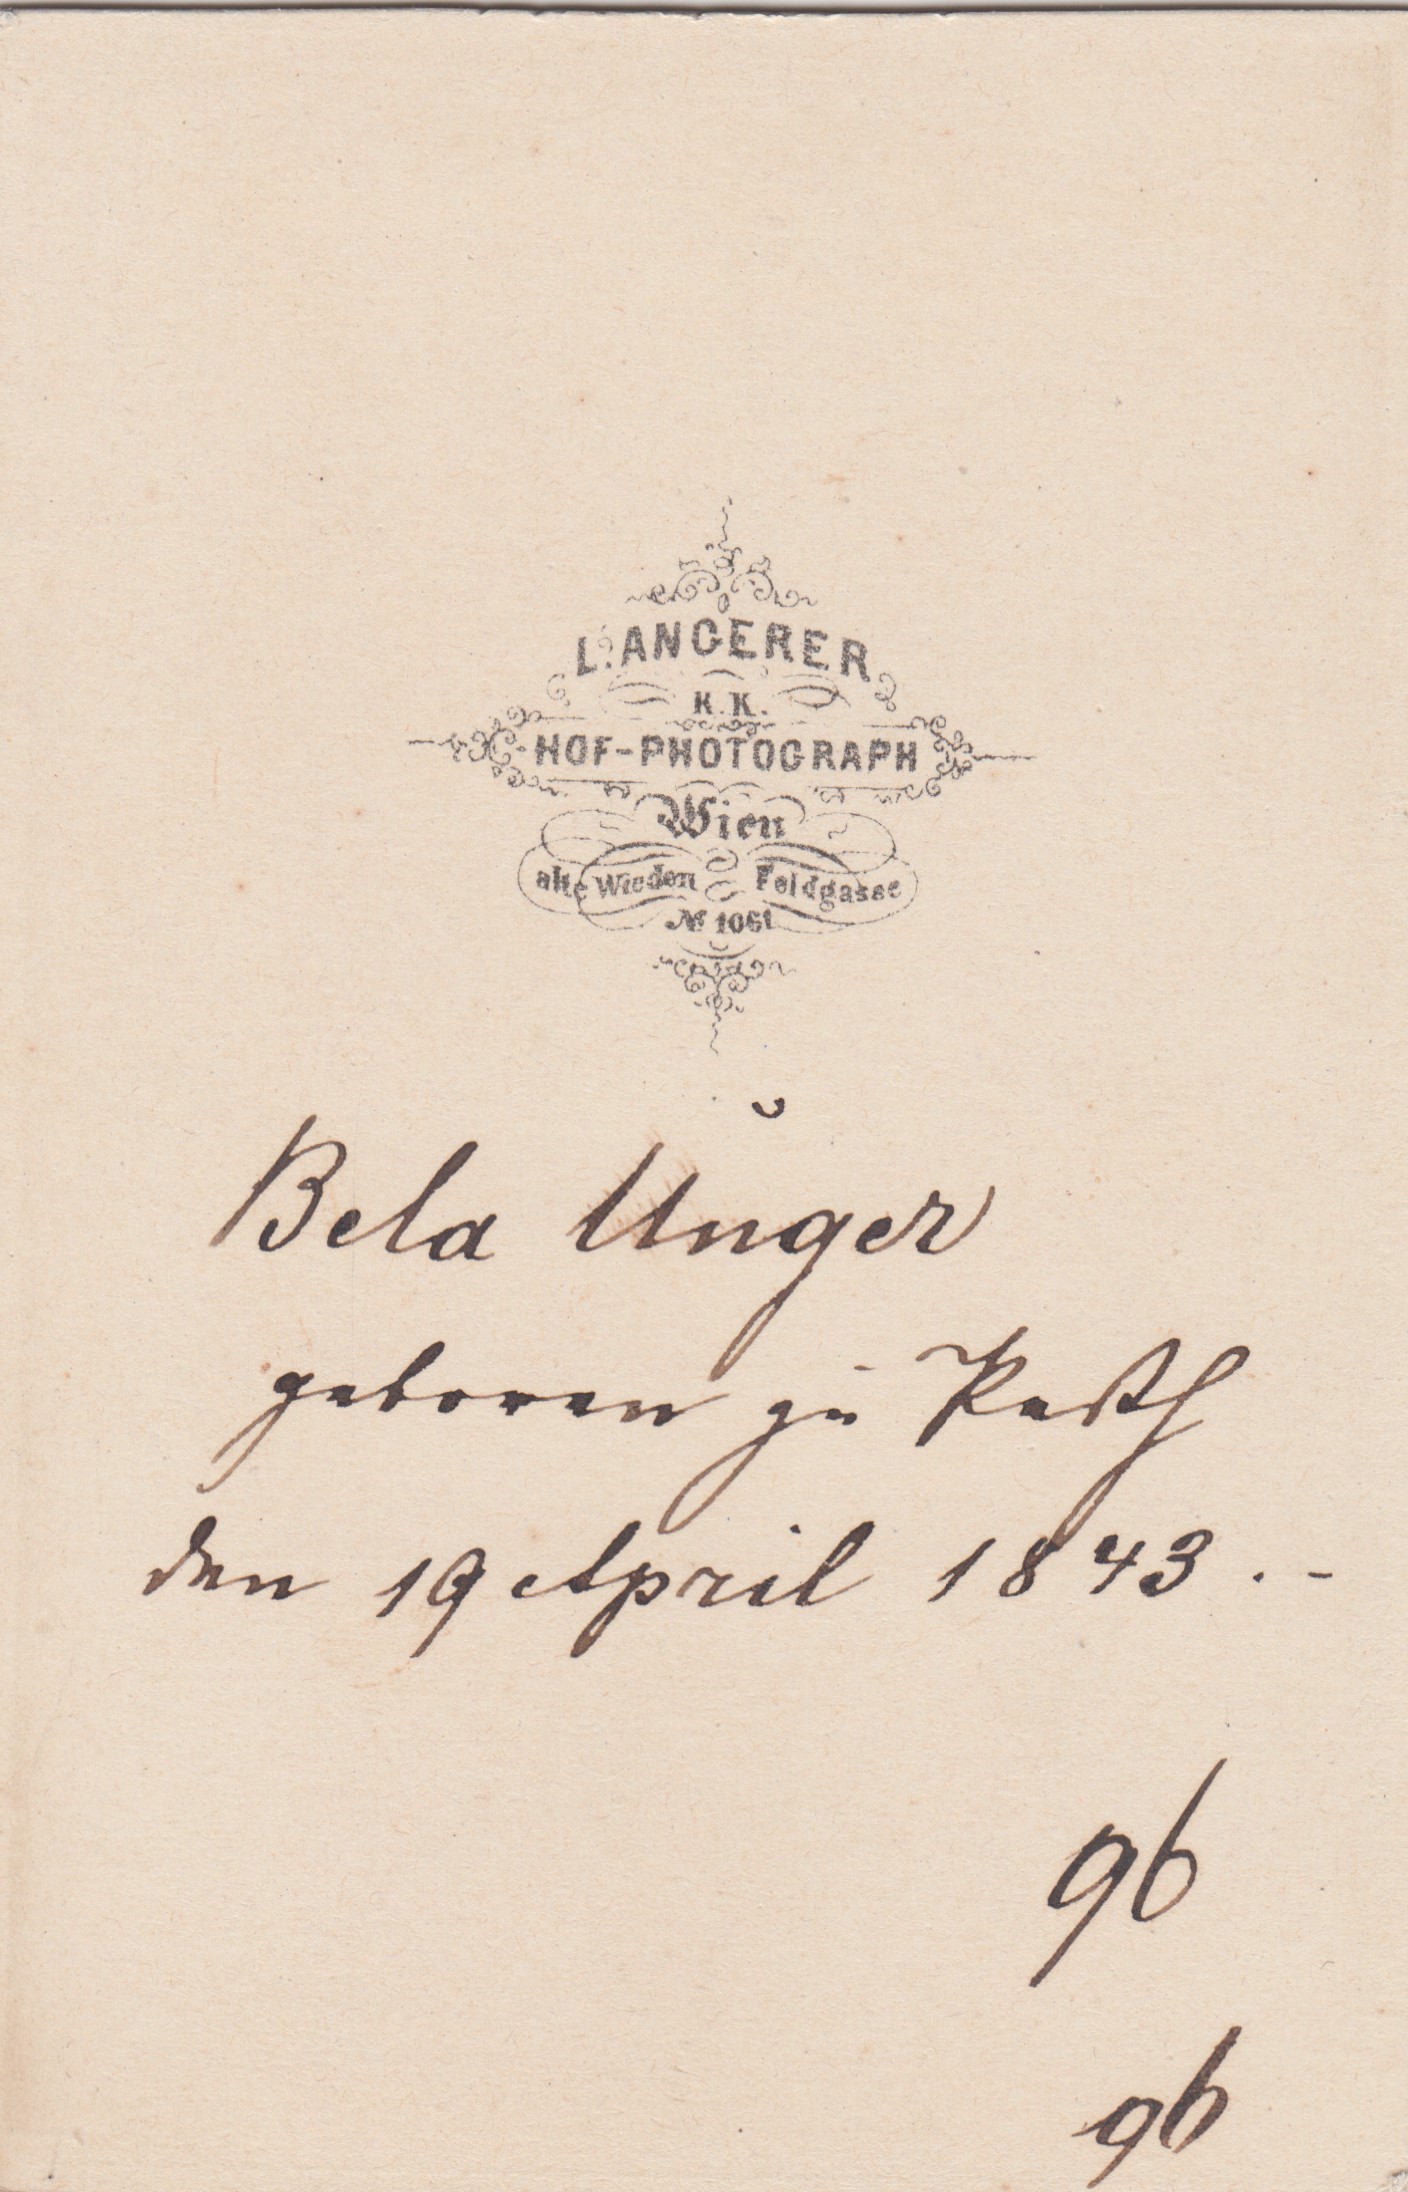 L. ANGERER
K. K.
HOF-PHOTOGRAPH
Wien
alte Wieden Feldgasse
№ 1061
Bela Unger
geboren zu Pesth
den 19 April 1843 . -
96
96